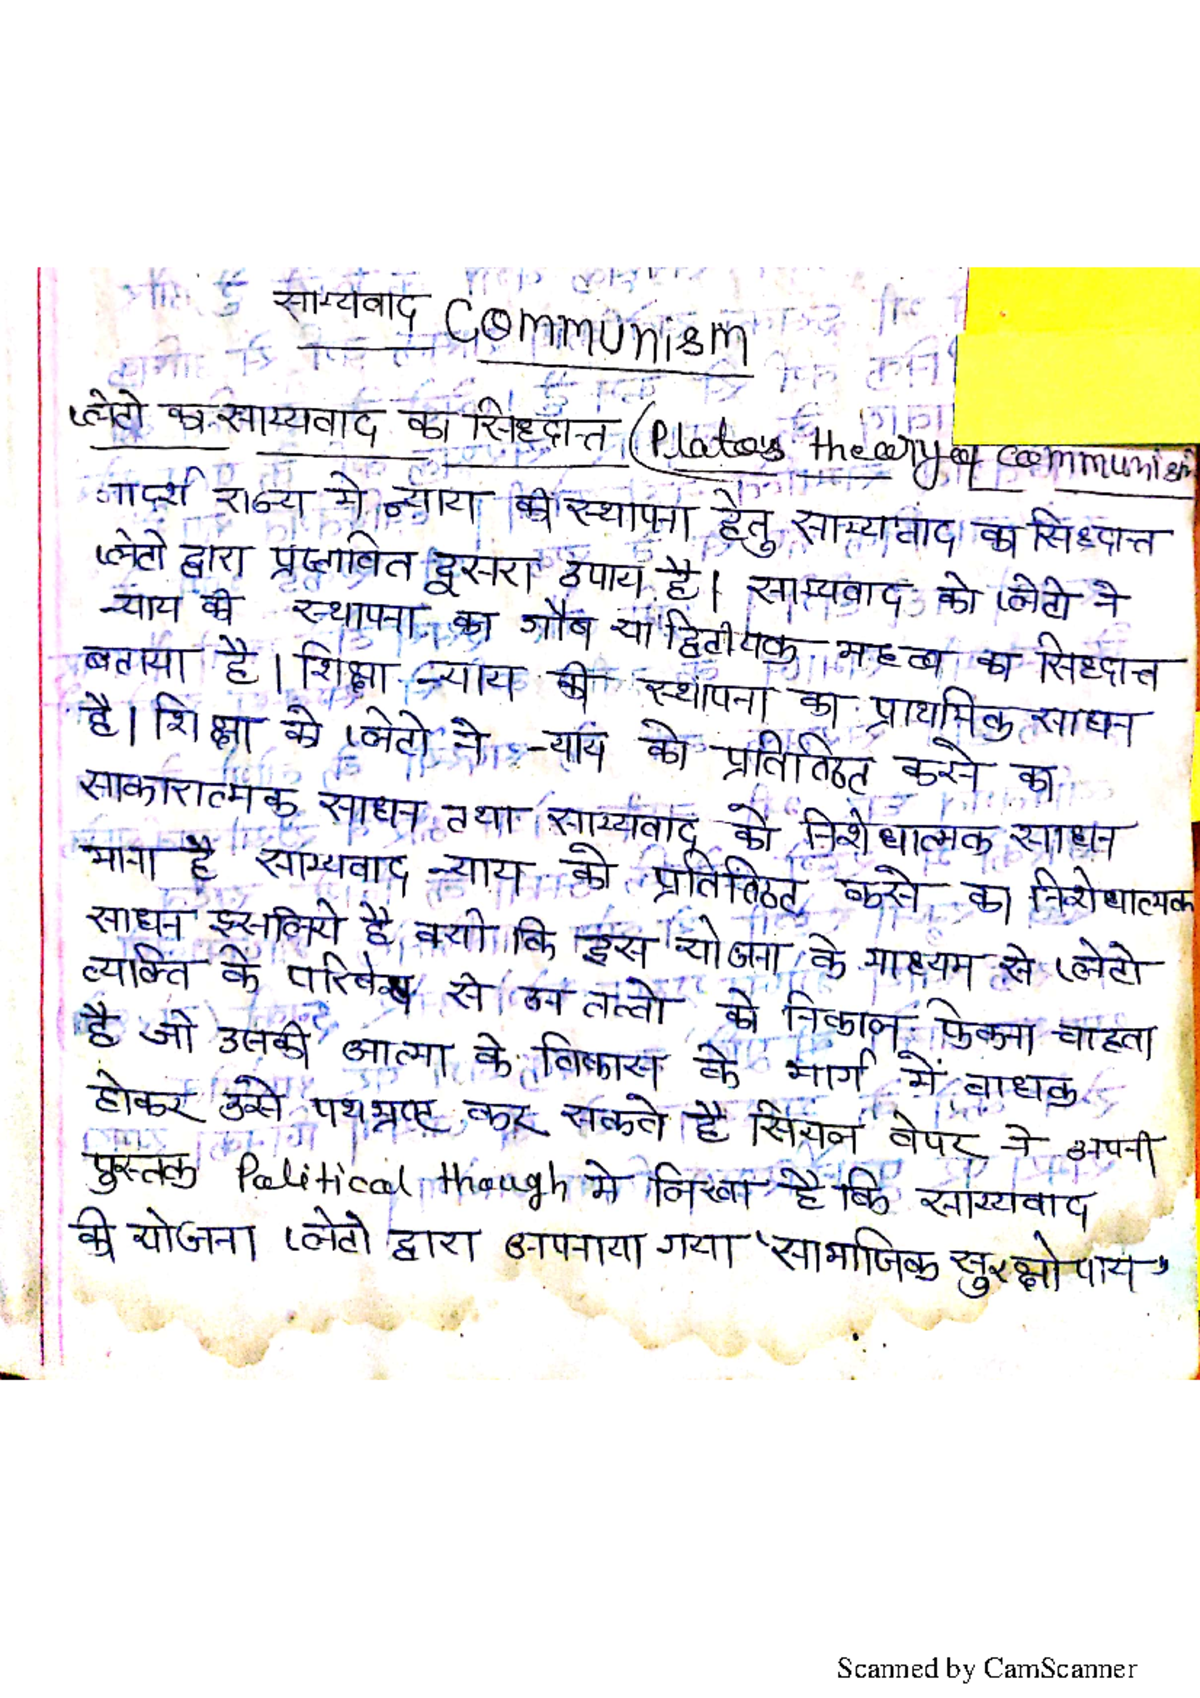 साम्यवाद Communism
प्लेटो का साम्यवाद का सिद्धान्त (Platos theory of communism
आदर्श राज्य मे न्याय की स्थापना हेतु साम्यवाद का सिद्धान्त
प्लेटो द्वारा प्रस्तावित दूसरा उपाय है। साम्यवाद को प्लेटो ने
न्याय की स्थापना का गौण या द्वितीयक महत्व का सिद्धान्त
बताया है। शिक्षा न्याय की स्थापना का प्राथमिक साधन
है। शिक्षा को प्लेटो ने न्याय को प्रतिष्ठित करने का
साकारात्मक साधन तथा साम्यवाद को निशेधात्मक साधन
माना है साम्यवाद न्याय को प्रतिष्ठित करने का निशेधात्मक
साधन इसलिये है क्यो कि इस योजना के माध्यम से प्लेटो
व्यक्ति के परिवेश से उन तत्वो को निकाल फेकना चाहता
है जो उनकी आत्मा के विकास के मार्ग में बाधक
होकर उसे पथभ्रष्ट कर सकते है सियन वेपर ने अपनी
पुस्तक Political though मे लिखा है कि साम्यवाद
की योजना प्लेटो द्वारा अपनाया गया 'सामाजिक सुरक्षोपाय'
Scanned by CamScanner